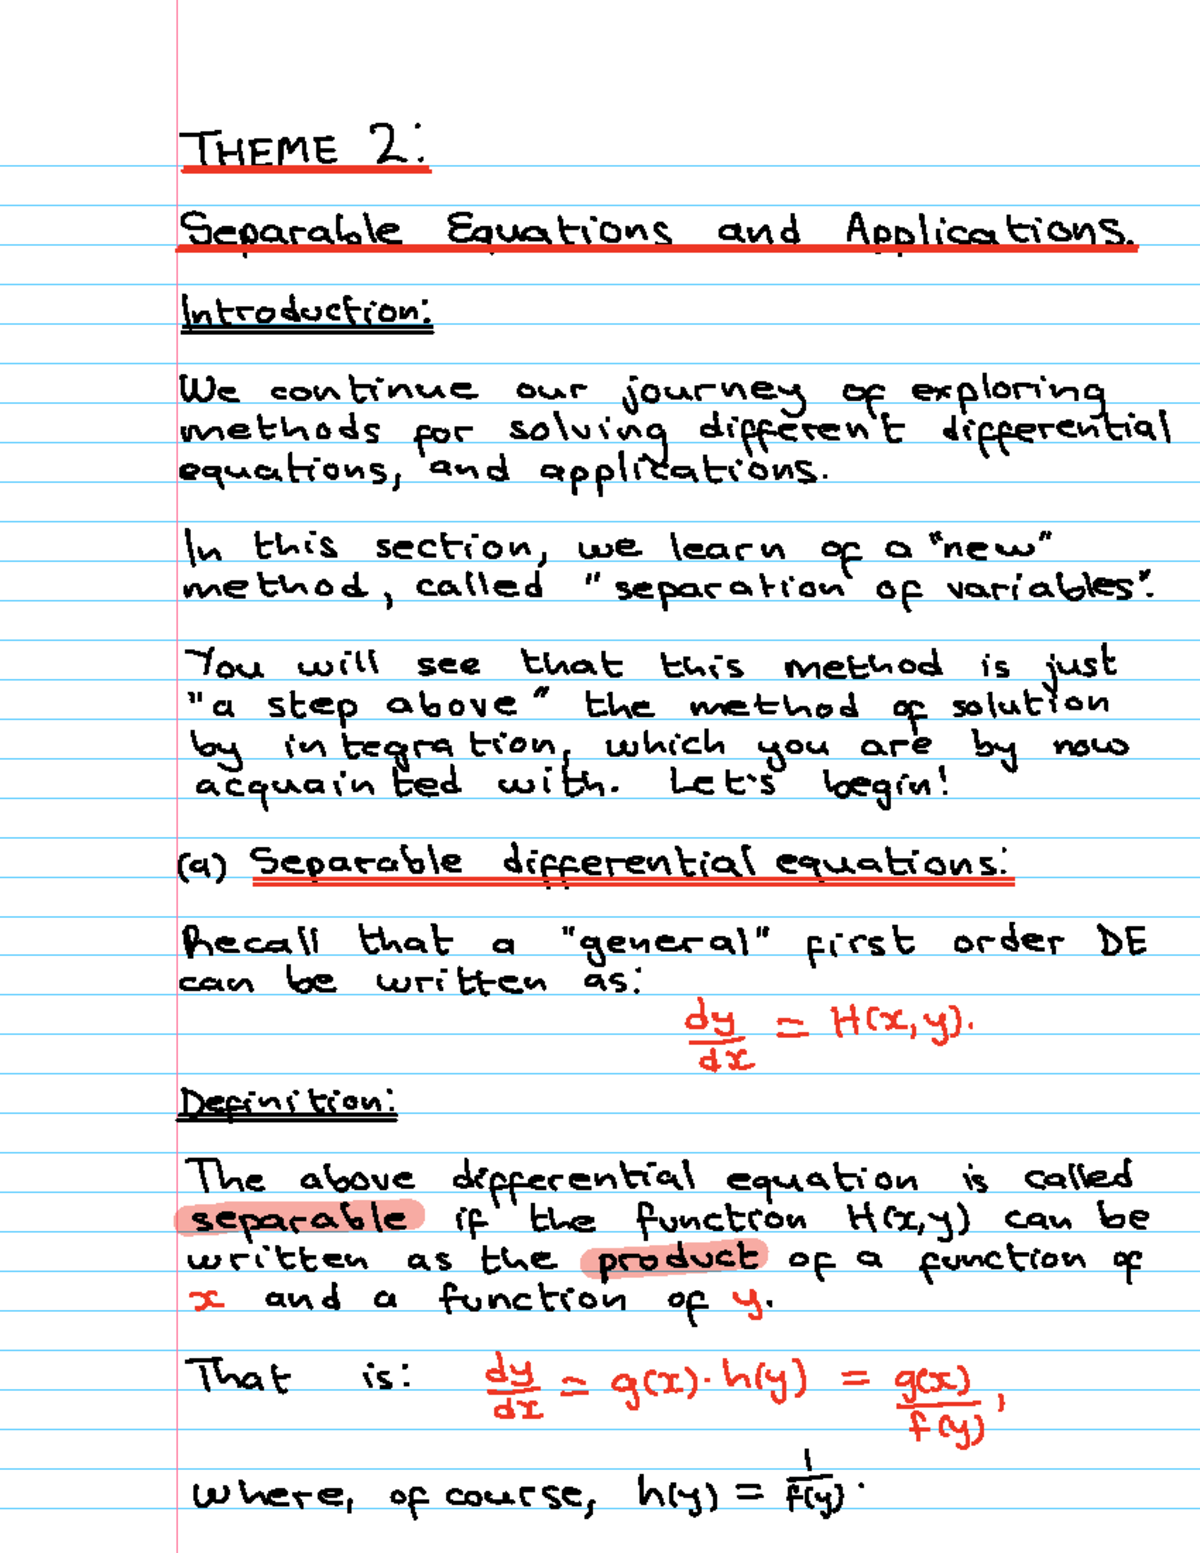 THEME 2:
Separable Equations and Applications.
Introduction:
We continue our journey of exploring
methods for solving different differential
equations, and applications.
In this section, we learn of a "new"
method, called "separation of variables".
You will see that this method is just
"a step above" the method of solution
by integration, which you are by now
acquainted with. Let's begin!
(a) Separable differential equations:
Recall that a "general" first order DE
can be written as:
dy/dx = H(x,y).
Definition:
The above differential equation is called
separable if the function H(x,y) can be
written as the product of a function of
x and a function of y.
That is: dy/dx = g(x)·h(y) = g(x)/f(y),
where, of course, h(y) = 1/f(y).